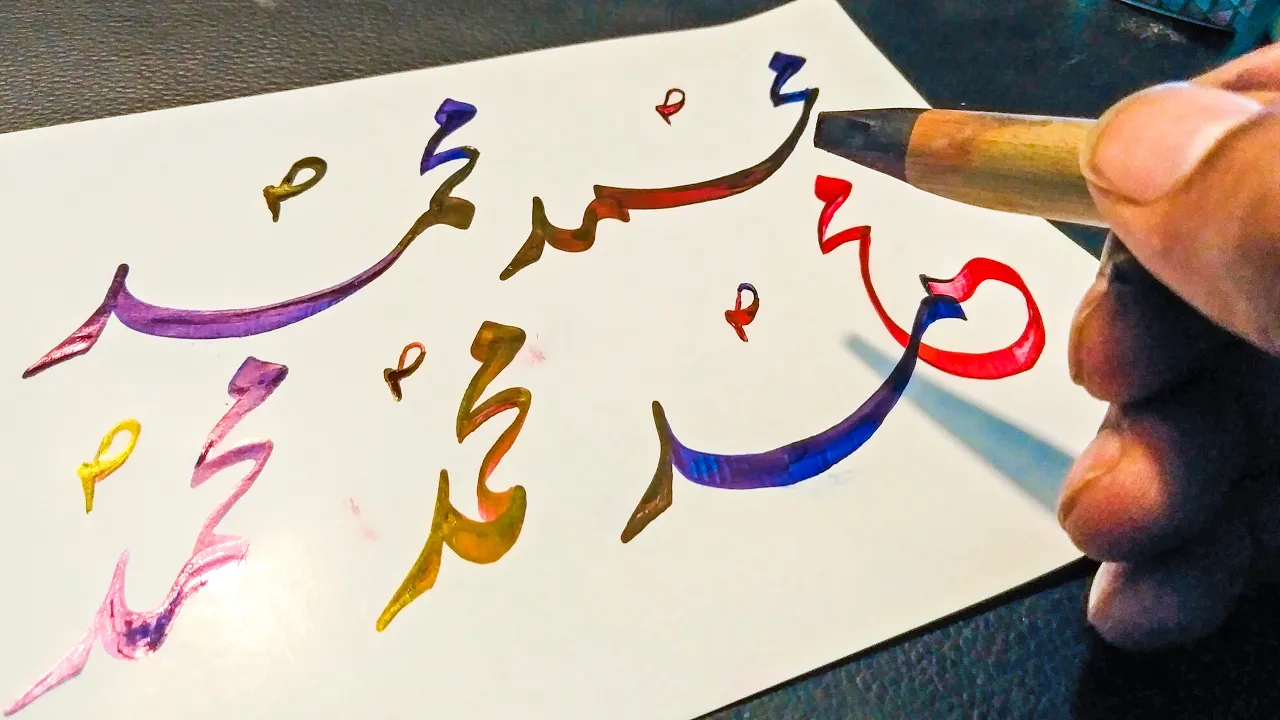 محمدؐ محمدؐ
محمدؐ محمدؐ محمدؐ